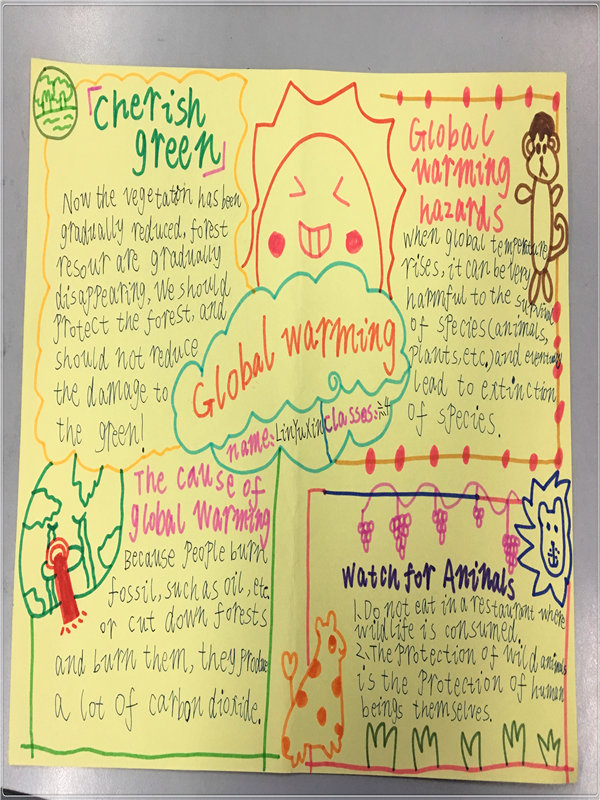 「Cherish
green」
Now the vegetation has been
gradually reduced, forest
resour are gradually
disappearing, We should
protect the forest, and
should not reduce
the damage to
the green!
Global warming
name: Linyuxin classes:
Global
warming
hazards
When global temperature
rises, it can be very
harmful to the survival
of species (animals,
plants, etc.) and eventually
lead to extinction
of species.
The cause of
global warming
Because people burn
fossil, such as oil, etc.
or cut down forests
and burn them, they produce
a lot of carbon dioxide.
Watch for Animals
1. Do not eat in a restaurant where
wildlife is consumed.
2. The protection of wild animals
is the protection of human
beings themselves.